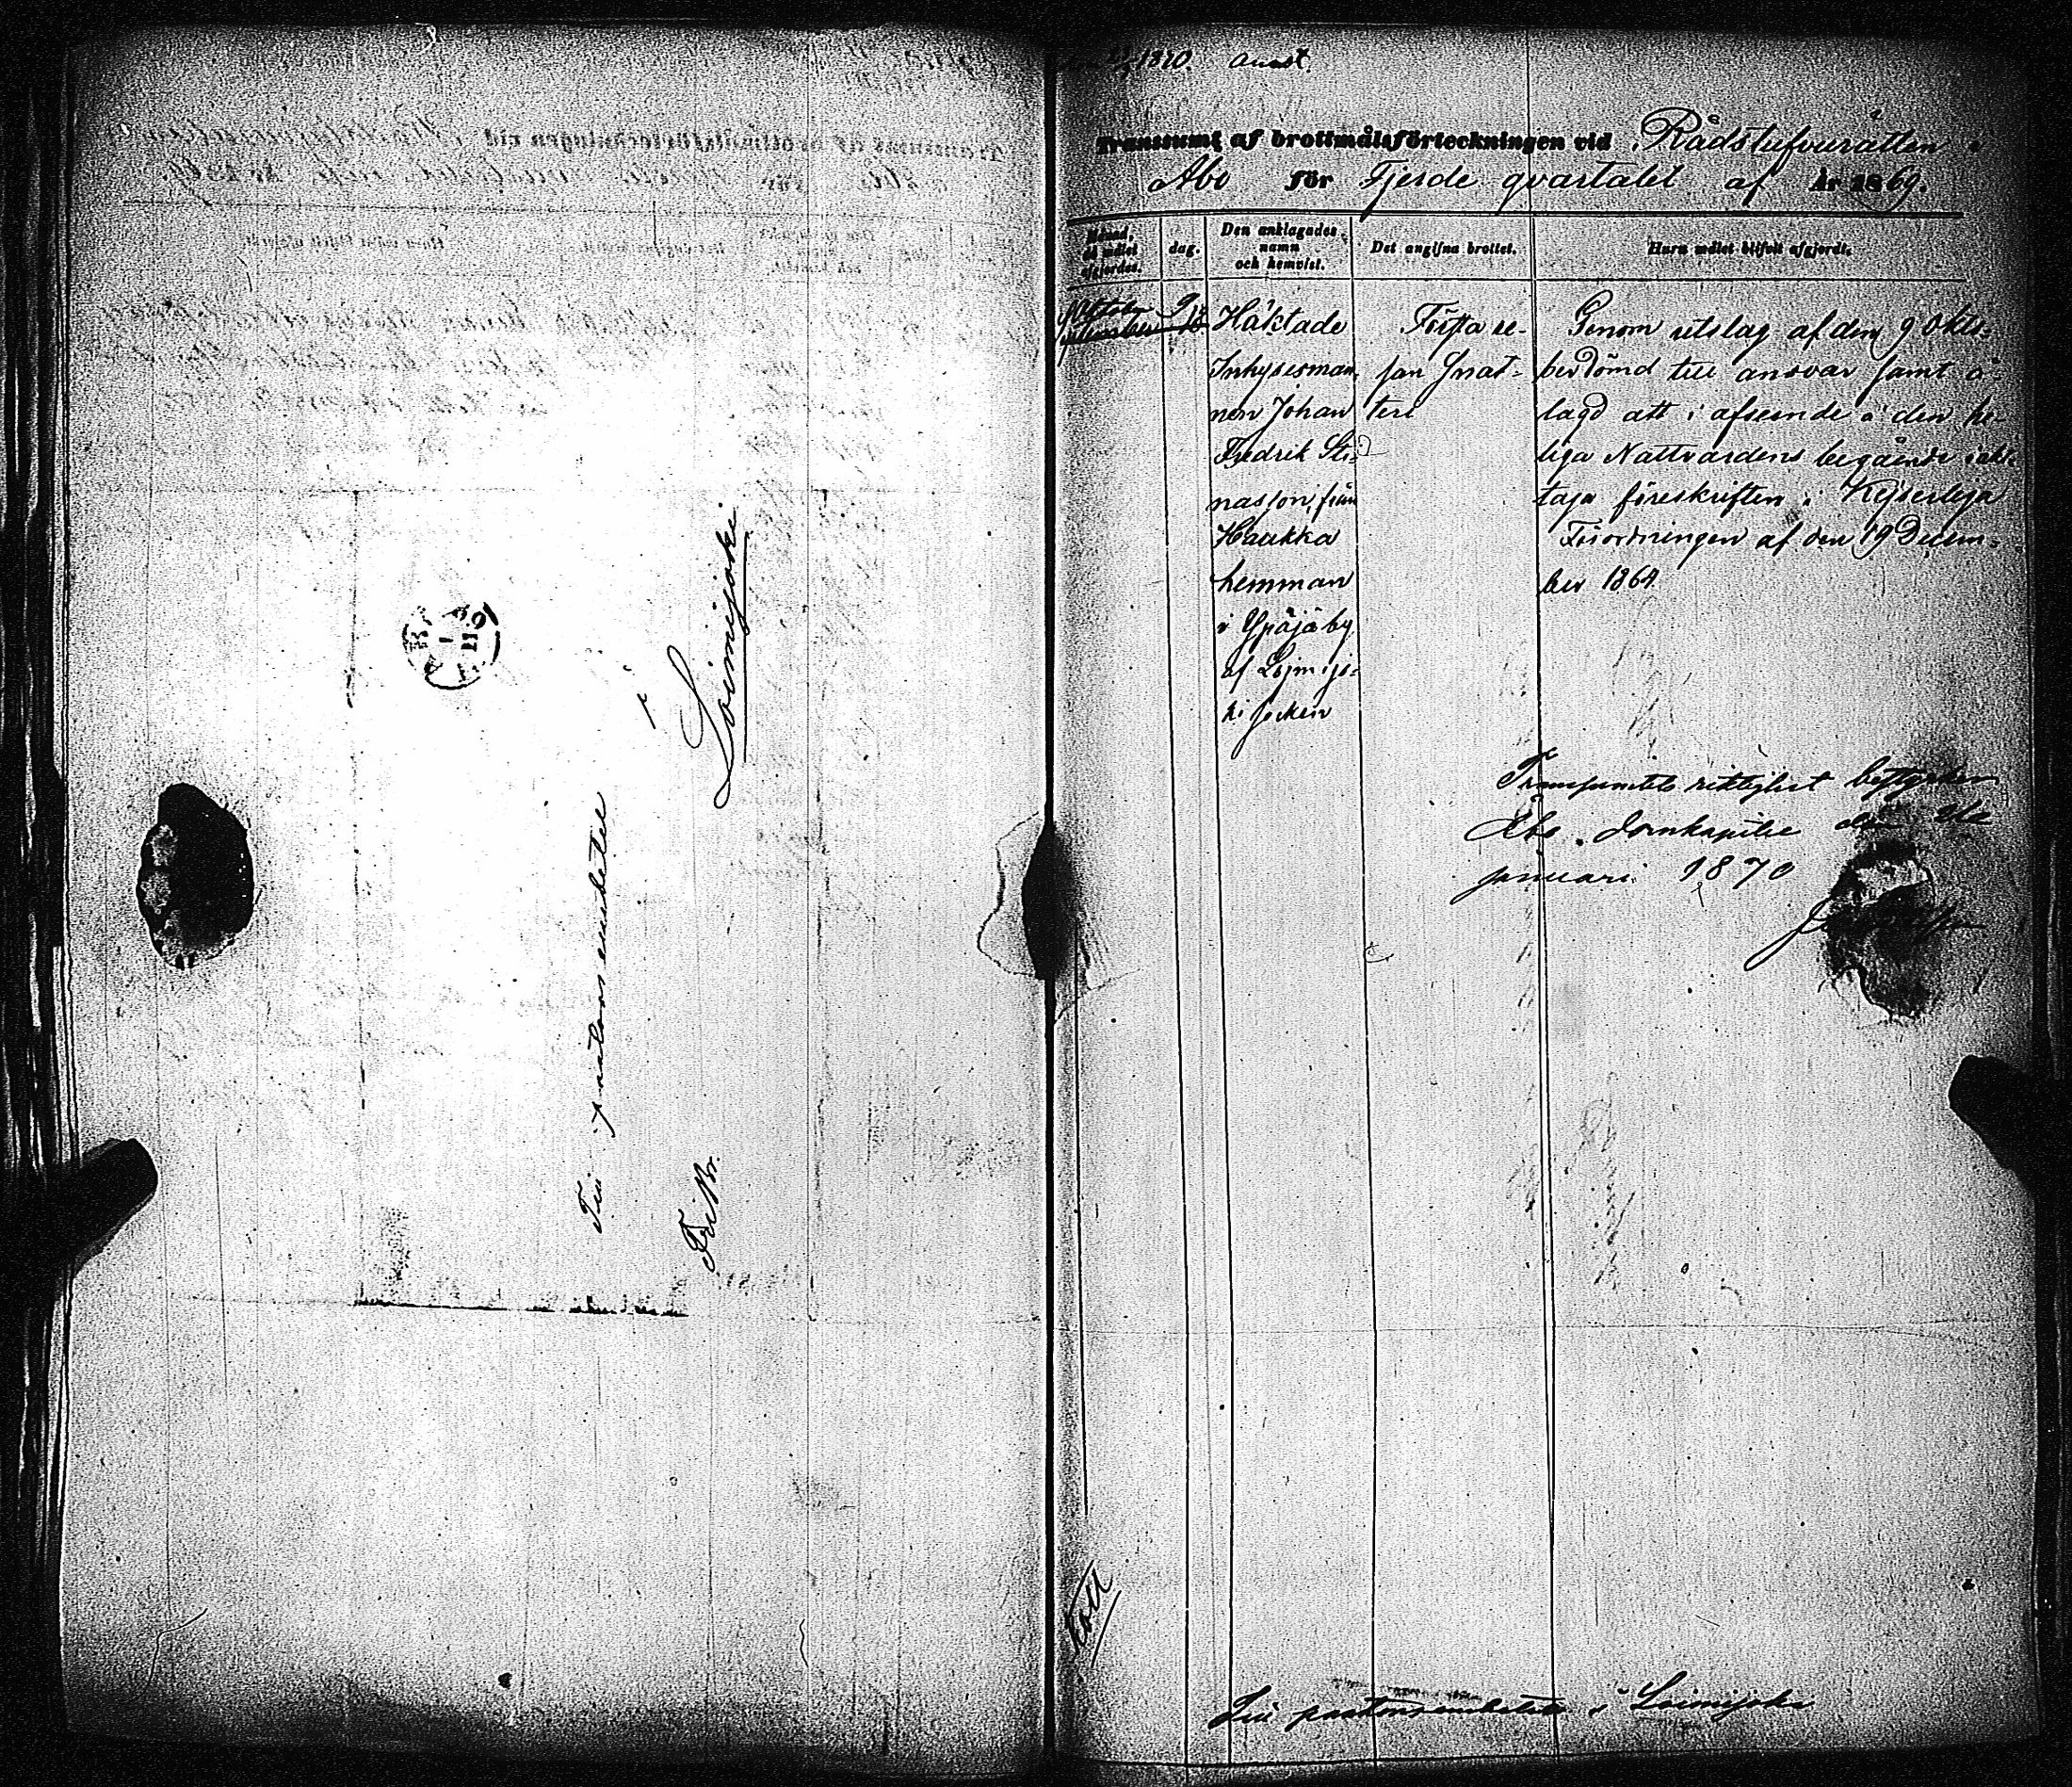 Till pastorsembetet
i
Loimijoki
Fr. Br.
1870. anmt.
Transsumt af brottmålsförteckningen vid Rådstufvurätten i
Åbo för Fjerde qvartalet af År 1869.
Månad, då målet afgjordes.
dag.
Den anklagades namn och hemvist.
Det angifna brottet.
Huru målet blifvit afgjordt.
Oktober 9 Häktade Första re- Genom utslag af den 9 Okto-
Inhysesman- san snat- ber dömd till ansvar samt å-
nen Johan teri lagd att i afseende å den he-
Fredrik Sti- liga Nattvardens begående iakt-
nasson, från taga föreskriften i Kejserliga
Haukka Förordningen af den 19 Decem-
hemman ber 1864.
i Ypäjä by
af Lojmijo-
ki socken
Transsumtets riktighet bestyrker
Åbo Domkapitel den
januari 1870
Till pastorsembetet i Loimijoki